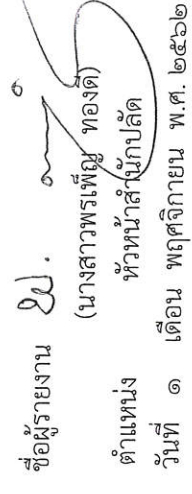 ชื่อผู้รายงาน
(นางสาวพรเพ็ญ ทองดี)
ตำแหน่ง หัวหน้าสำนักปลัด
วันที่ ๑ เดือน พฤศจิกายน พ.ศ. ๒๕๖๒